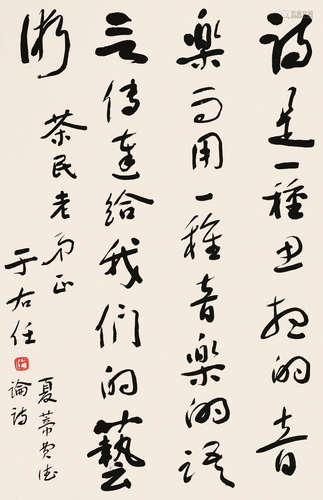 詩是一種思想的音
樂而用一種音樂的語
言傳達給我們的藝
術
茶民老弟正
于右任
夏芾賣德
論詩